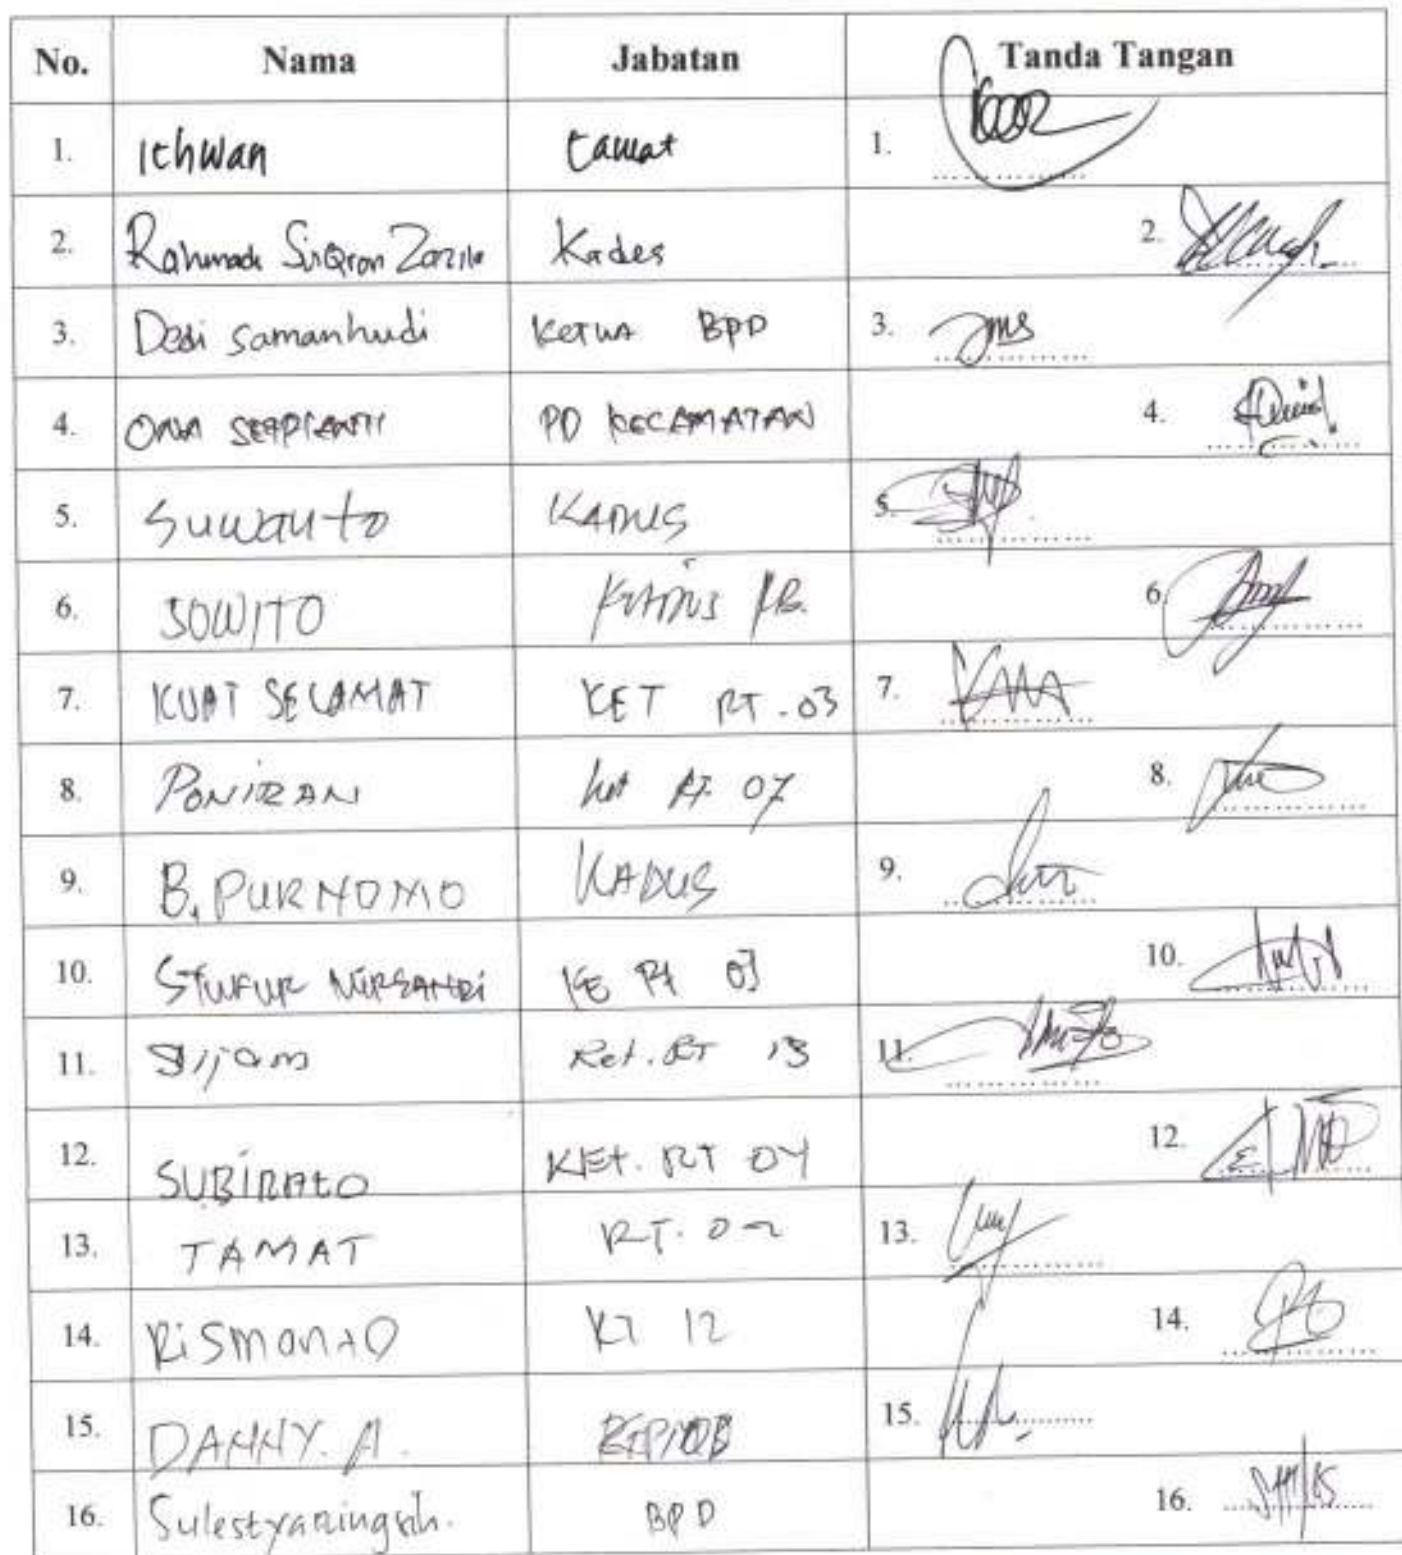 No. Nama Jabatan Tanda Tangan
1. Ichwan Camat 1.
2. Rahmad Zozila Kades 2.
3. Dedi Samanhudi Ketua BPD 3.
4. ONA SEPPIANTI PD KECAMATAN 4.
5. Suwauto KADUS 5.
6. SOWITO KADUS 6.
7. KUAT SELAMAT KET RT. 03 7.
8. PONIRAN RT 07 8.
9. B. PURNOMO KADUS 9.
10. 03 10.
11. Sijam Ket. RT 13 11.
12. SUBIRATO KET. RT 04 12.
13. TAMAT RT. 02 13.
14. RiSmanto RT 12 14.
15. DANNY. A. 15.
16. Sulestyaningsih. BPD 16.